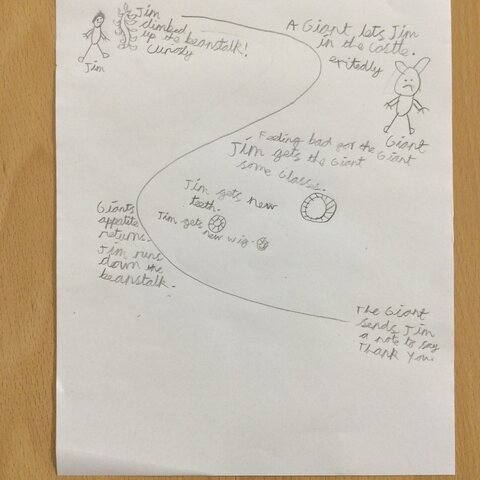 Jim
climbed
up the beanstalk!
curiosly
Jim
A Giant lets Jim
in the castle.
exitedly
Giant
Feeling bad for the Giant
Jim gets the Giant
some Glasses.
Jim gets new
teeth.
Jim gets new wig.
Giants
appetite
returns.
Jim runs
down the
beanstalk.
The Giant
sends Jim
a note to say
Thank You.